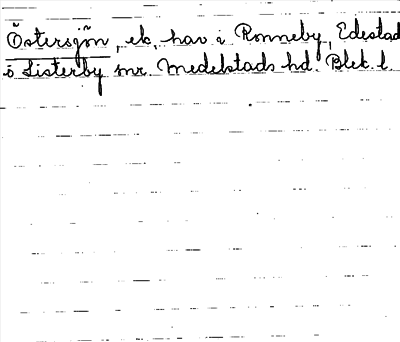 Östersjön, ek, hav i Ronneby, Edestad
o Listerby snr. Medelstads hd. Blek. l.